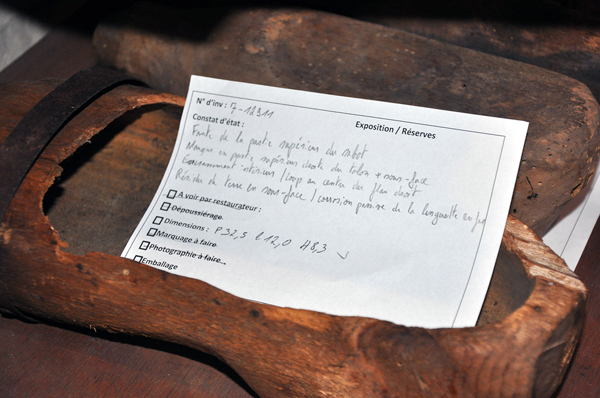 N° d'inv : 7-12311
Exposition / Réserves
Constat d'état :
Fente de la partie supérieure du sabot
Manque en partie supérieure droite du talon + sous-face
au centre du flan droit
Résidus de terre en sous-face / corrosion passive de la languette en fer
A voir par restaurateur :
Dépoussiérage
Dimensions : P 32,5 l 12,0 H 8,3
Marquage à faire
Photographie à faire
Emballage